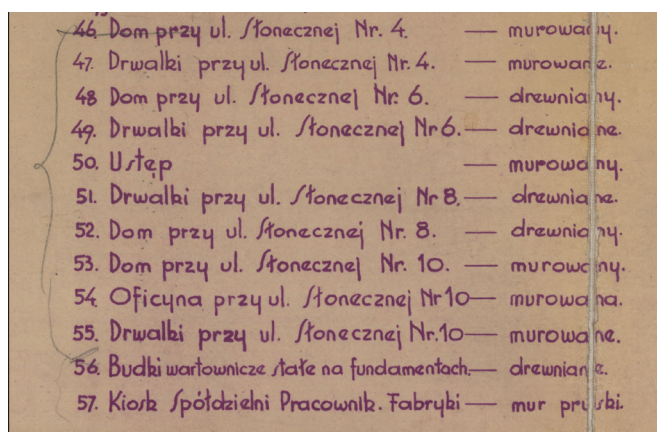 46. Dom przy ul. Słonecznej Nr. 4. — murowany.
47. Drwalki przy ul. Słonecznej Nr. 4. — murowane.
48 Dom przy ul. Słonecznej Nr. 6. — drewniany.
49. Drwalki przy ul. Słonecznej Nr 6. — drewniane.
50. Ustęp — murowany.
51. Drwalki przy ul. Słonecznej Nr 8. — drewniane.
52. Dom przy ul. Słonecznej Nr. 8. — drewniany.
53. Dom przy ul. Słonecznej Nr. 10. — murowany.
54. Oficyna przy ul. Słonecznej Nr 10 — murowana.
55. Drwalki przy ul. Słonecznej Nr. 10 — murowane.
56. Budki wartownicze stałe na fundamentach. — drewniane.
57. Kiosk Spółdzielni Pracownik. Fabryki — mur pruski.